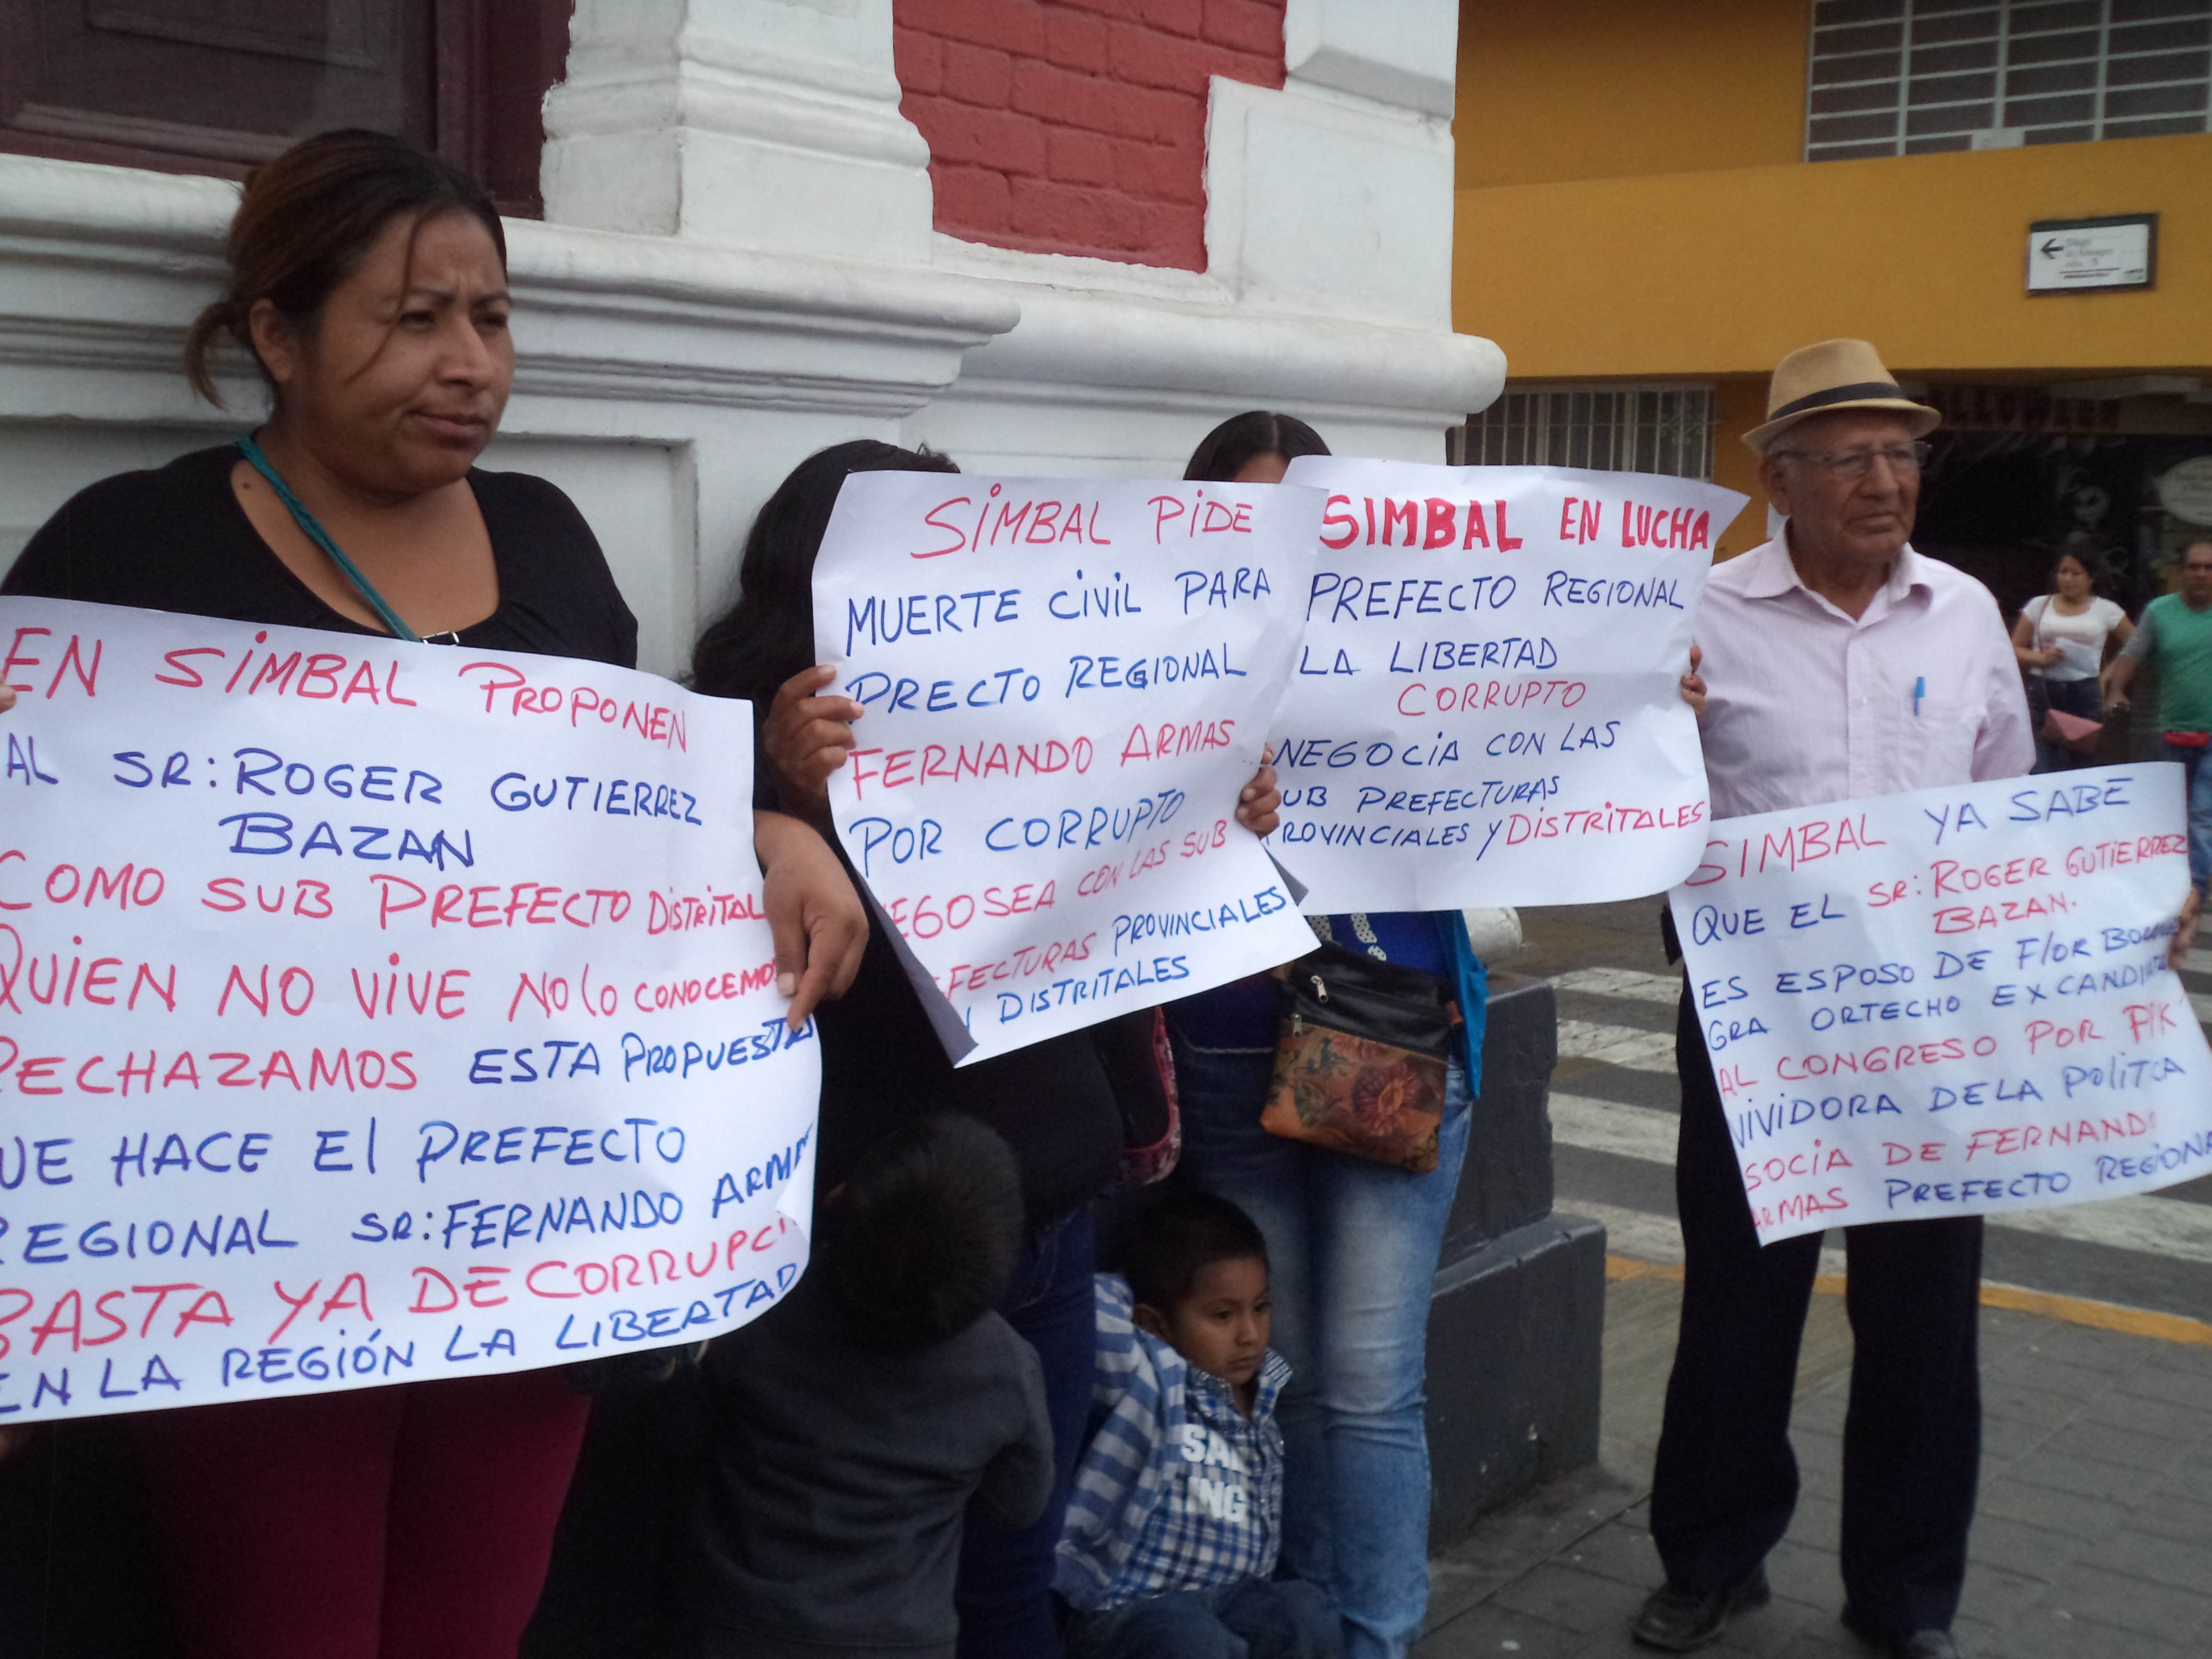 EN SIMBAL PROPONEN
AL SR: ROGER GUTIERREZ
BAZAN
COMO SUB PREFECTO DISTRITAL
QUIEN NO VIVE NO lO CONOCEMOS
RECHAZAMOS ESTA PROPUESTA
UE HACE El PREFECTO
REGIONAL SR: FERNANDO ARMA
BASTA YA DE CORRUPCI
EN LA REGIÓN LA LIBERTAD
SIMBAL PIDE
MUERTE CIVIL PARA
PRECTO REGIONAL
FERNANDO ARMAS
POR CORRUPTO
EGOSEA CON LAS SUB
EFECTURAS PROVINCIALES
DISTRITALES
SIMBAL EN LUCHA
PREFECTO REGIONAL
LA LIBERTAD
CORRUPTO
NEGOCIA CON LAS
UB PREFECTURAS
ROVINCIALES Y DISTRITALES
SIMBAL YA SABE
QUE EL SR: ROGER GUTIERREZ
BAZAN.
ES ESPOSO DE FlOR
GRA ORTECHO EX
AL CONGRESO POR
VIVIDORA DE LA POLITCA
SOCIA DE FERNANDO
ARMAS PREFECTO REGIONA
SAL
ING